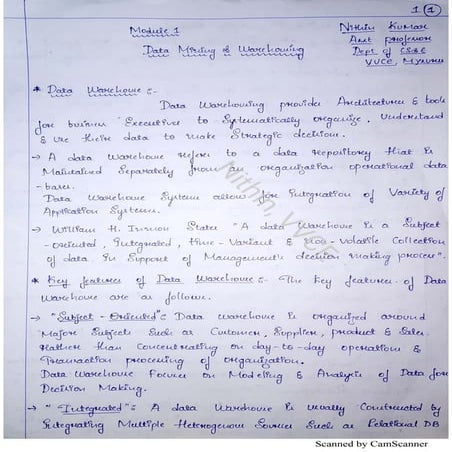 1 1
Module 1
Nithin Kumar
Asst professor
Data Mining & Warehousing
Dept of CS&E
VVCE, Mysuru
* Data Warehouse :-
Data Warehousing provides Architectures & tools
for business Executive to Systematically organize, Understand
& use their data to make Strategic decision.
→ A data Warehouse refers to a data repository that is
Maintained Separately from an organization operational data
-bases.
Data Warehouse System allows for Integration of Variety of
Application Systems.
→ William H. Inmon States "A data Warehouse is a Subject
-oriented, Integrated, time-Variant & non-Volatile Collection
of data in Support of Management's decision making process".
* Key features of Data Warehouse :- The Key features of Data
Warehouse are as follows.
→ "Subject-Oriented": Data Warehouse is organized around
Major Subjects Such as Customer, Supplier, product & Sales.
Rather than Concentrating on day-to-day operations &
Transaction processing of organization.
Data Warehouse Focuses on Modeling & Analysis of Data for
Decision Making.
→ "Integrated": A data Warehouse is usually Constructed by
Integrating Multiple Heterogenous Sources Such as Relational DB
Nithin, VVCE
Scanned by CamScanner